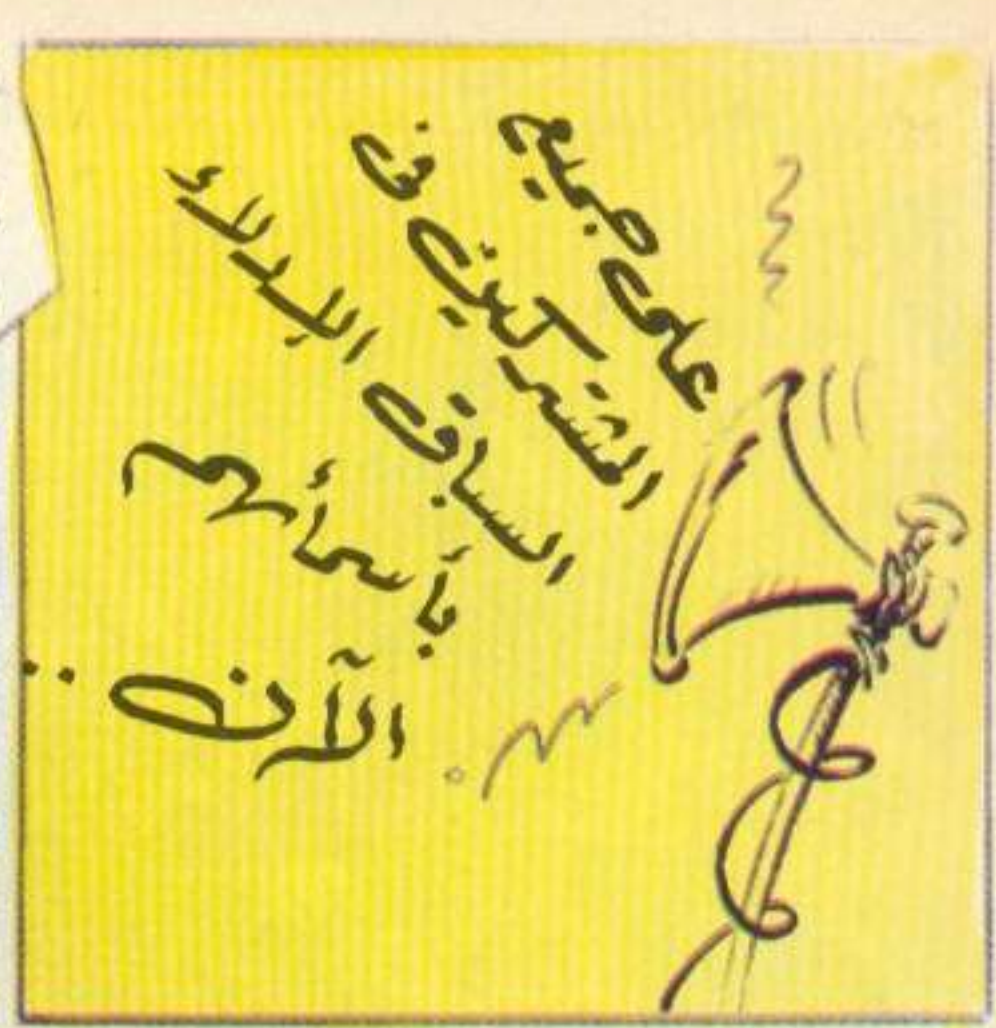 على جميع
المشتركين فى
السباق الإدلاء
بأسمائهم
الآن ..